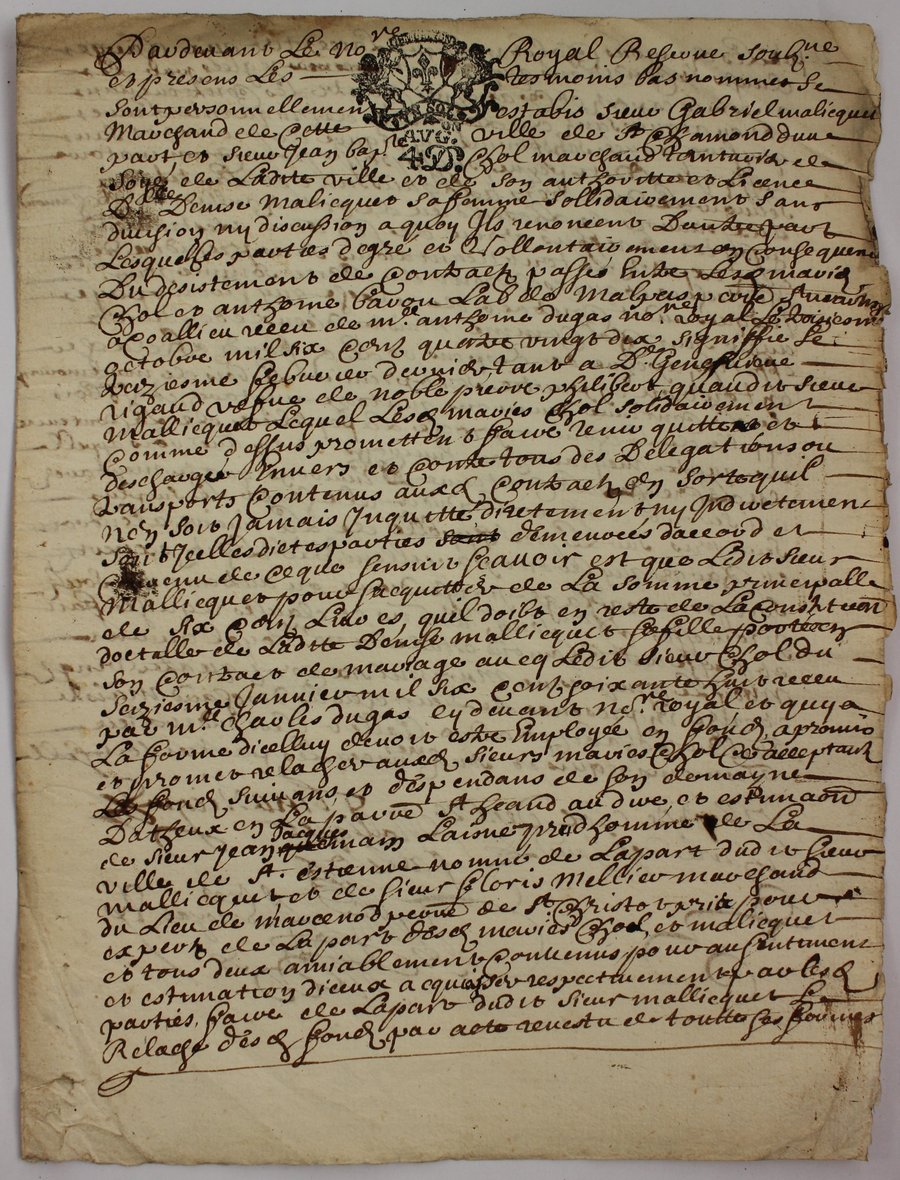 Pardevant Le No.re Royal Reserve soub.ne
et presens Les tesmoins bas nommes se
sont personnellement estabis sieur Gabriel malicquet
Marchand de Cette ville de St Chamond d'une
part et sieur Jean bap.te Chol marchand de
AVG.
Soye de Ladite ville et de son authoritte et Licence
D.lle Denise Malicquet sa femme sollidairement sans
division ny discussion a quoy Ils renoncent D'autre part
Lesquelles parties de gré et Vollontairement en Consequence
Du desistement de Contract passés Entre Lesd maries
Chol et anthoine bavou Lab de Malpas
a Coallieu receu de m.e anthoine dugas no.re royal Le
octobre mil six Cent quatre vingt dix signiffie Le
seiziesme febvrier dernier tant a D.e Genefvieve
rigaud vefve de noble pierre philibert quaudit sieur
Mallicquet Lequel Lesd maries Chol solidairement
Comme dessus promettent faire tenir quitte et
descharger Envers et Contre tous des Delegations ou
transports Contenus auxd Contract En sorte quil
N'en soit Jamais Inquiette directement ny Indirectement
sont Icelles dictes parties demeurées d'accord et
Convenu de Ce que sensuit scavoir est que Ledit sieur
Mallicquet pour sacquitter de La somme principalle
de six Cent Livres, quil doibt en reste de La Constitu͞on
doctalle de Ladite Denise mallicquet sa fille portée En
son Contract de mariage avecq Ledit sieur Chol du
seziesme Janvier mil six Cent soixante huit receu
par m.e Charles dugas Cy devant No.re royal et qui a
La forme dicelluy devoit estre Employée en fondz, a promis
et promet relacher auxd sieurs maries Chol Ce acceptant
Les fondz suivans et despendans de son domayne
D'atheux en La par͞re St heand au dire, et estima͞on
de sieur Jean Jacques Laisne prudhomme de La
ville de St estienne nommé de La part dudit sieur
mallicquet et de sieur floris Mellier marchand
du Lieu de marcenod par͞re de St Christot pris pour
expert de La part desd maries Chol et malicquet
et tous deux amiablement Convenus pour au sentiment
et estimation diceux acquiesser respectivement par lesd
parties, faire de La part dudit sieur mallicquet Le
Relache desd fondz par acte revestu de toutte ses formes